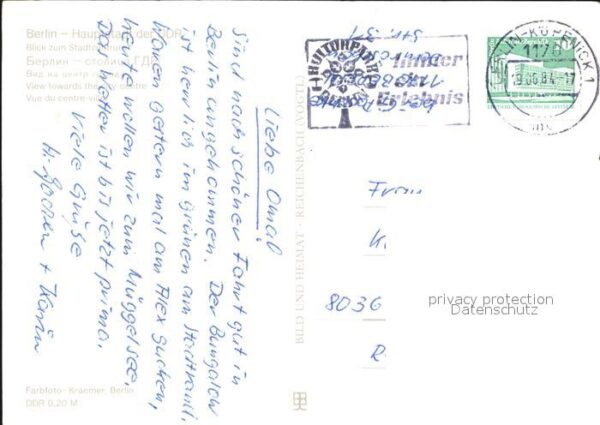 Berlin – Hauptstadt der DDR
Blick zum Stadtzentrum
Берлин – столица ГДР
Вид на центр города
View towards the city centre
Vue du centre ville
Liebe Oma!
Sind nach schöner Fahrt gut in
Berlin angekommen. Der Bungalow
ist herrlich im grünen am Stadtrand.
Waren gestern mal am Alex gucken,
heute wollen wir zum Müggelsee.
Das Wetter ist bis jetzt prima.
Viele Grüße
H. Jochen + Karin
Farbfoto – Kraemer, Berlin
DDR 0,20 M
BILD UND HEIMAT · REICHENBACH (VOGTL)
KULTURPARK
BERLIN
Immer
Erlebnis
BERLIN-KÖPENICK 1
1170
19.06.84-17
Frau
K.
8036
R
privacy protection
Datenschutz